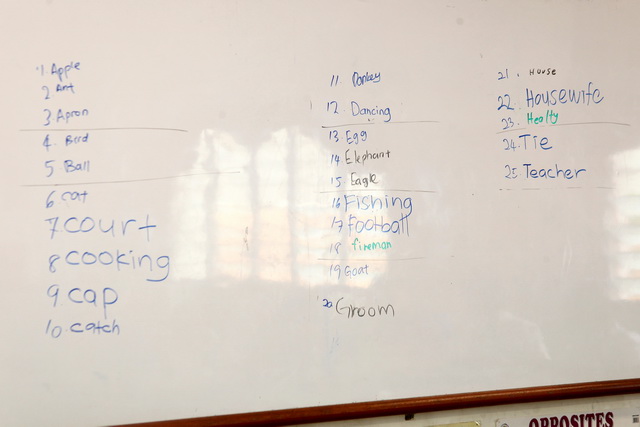 1. Apple
2 Ant
3. Apron
4. Bird
5 Ball
6 cat
7 court
8 cooking
9. cap
10. catch
11 Donkey
12. Dancing
13. Egg
14 Elephant
15. Eagle
16 Fishing
17 Football
18 fireman
19 Goat
20 Groom
21. House
22. Housewife
23. Healty
24. Tie
25 Teacher
OPPOSITES